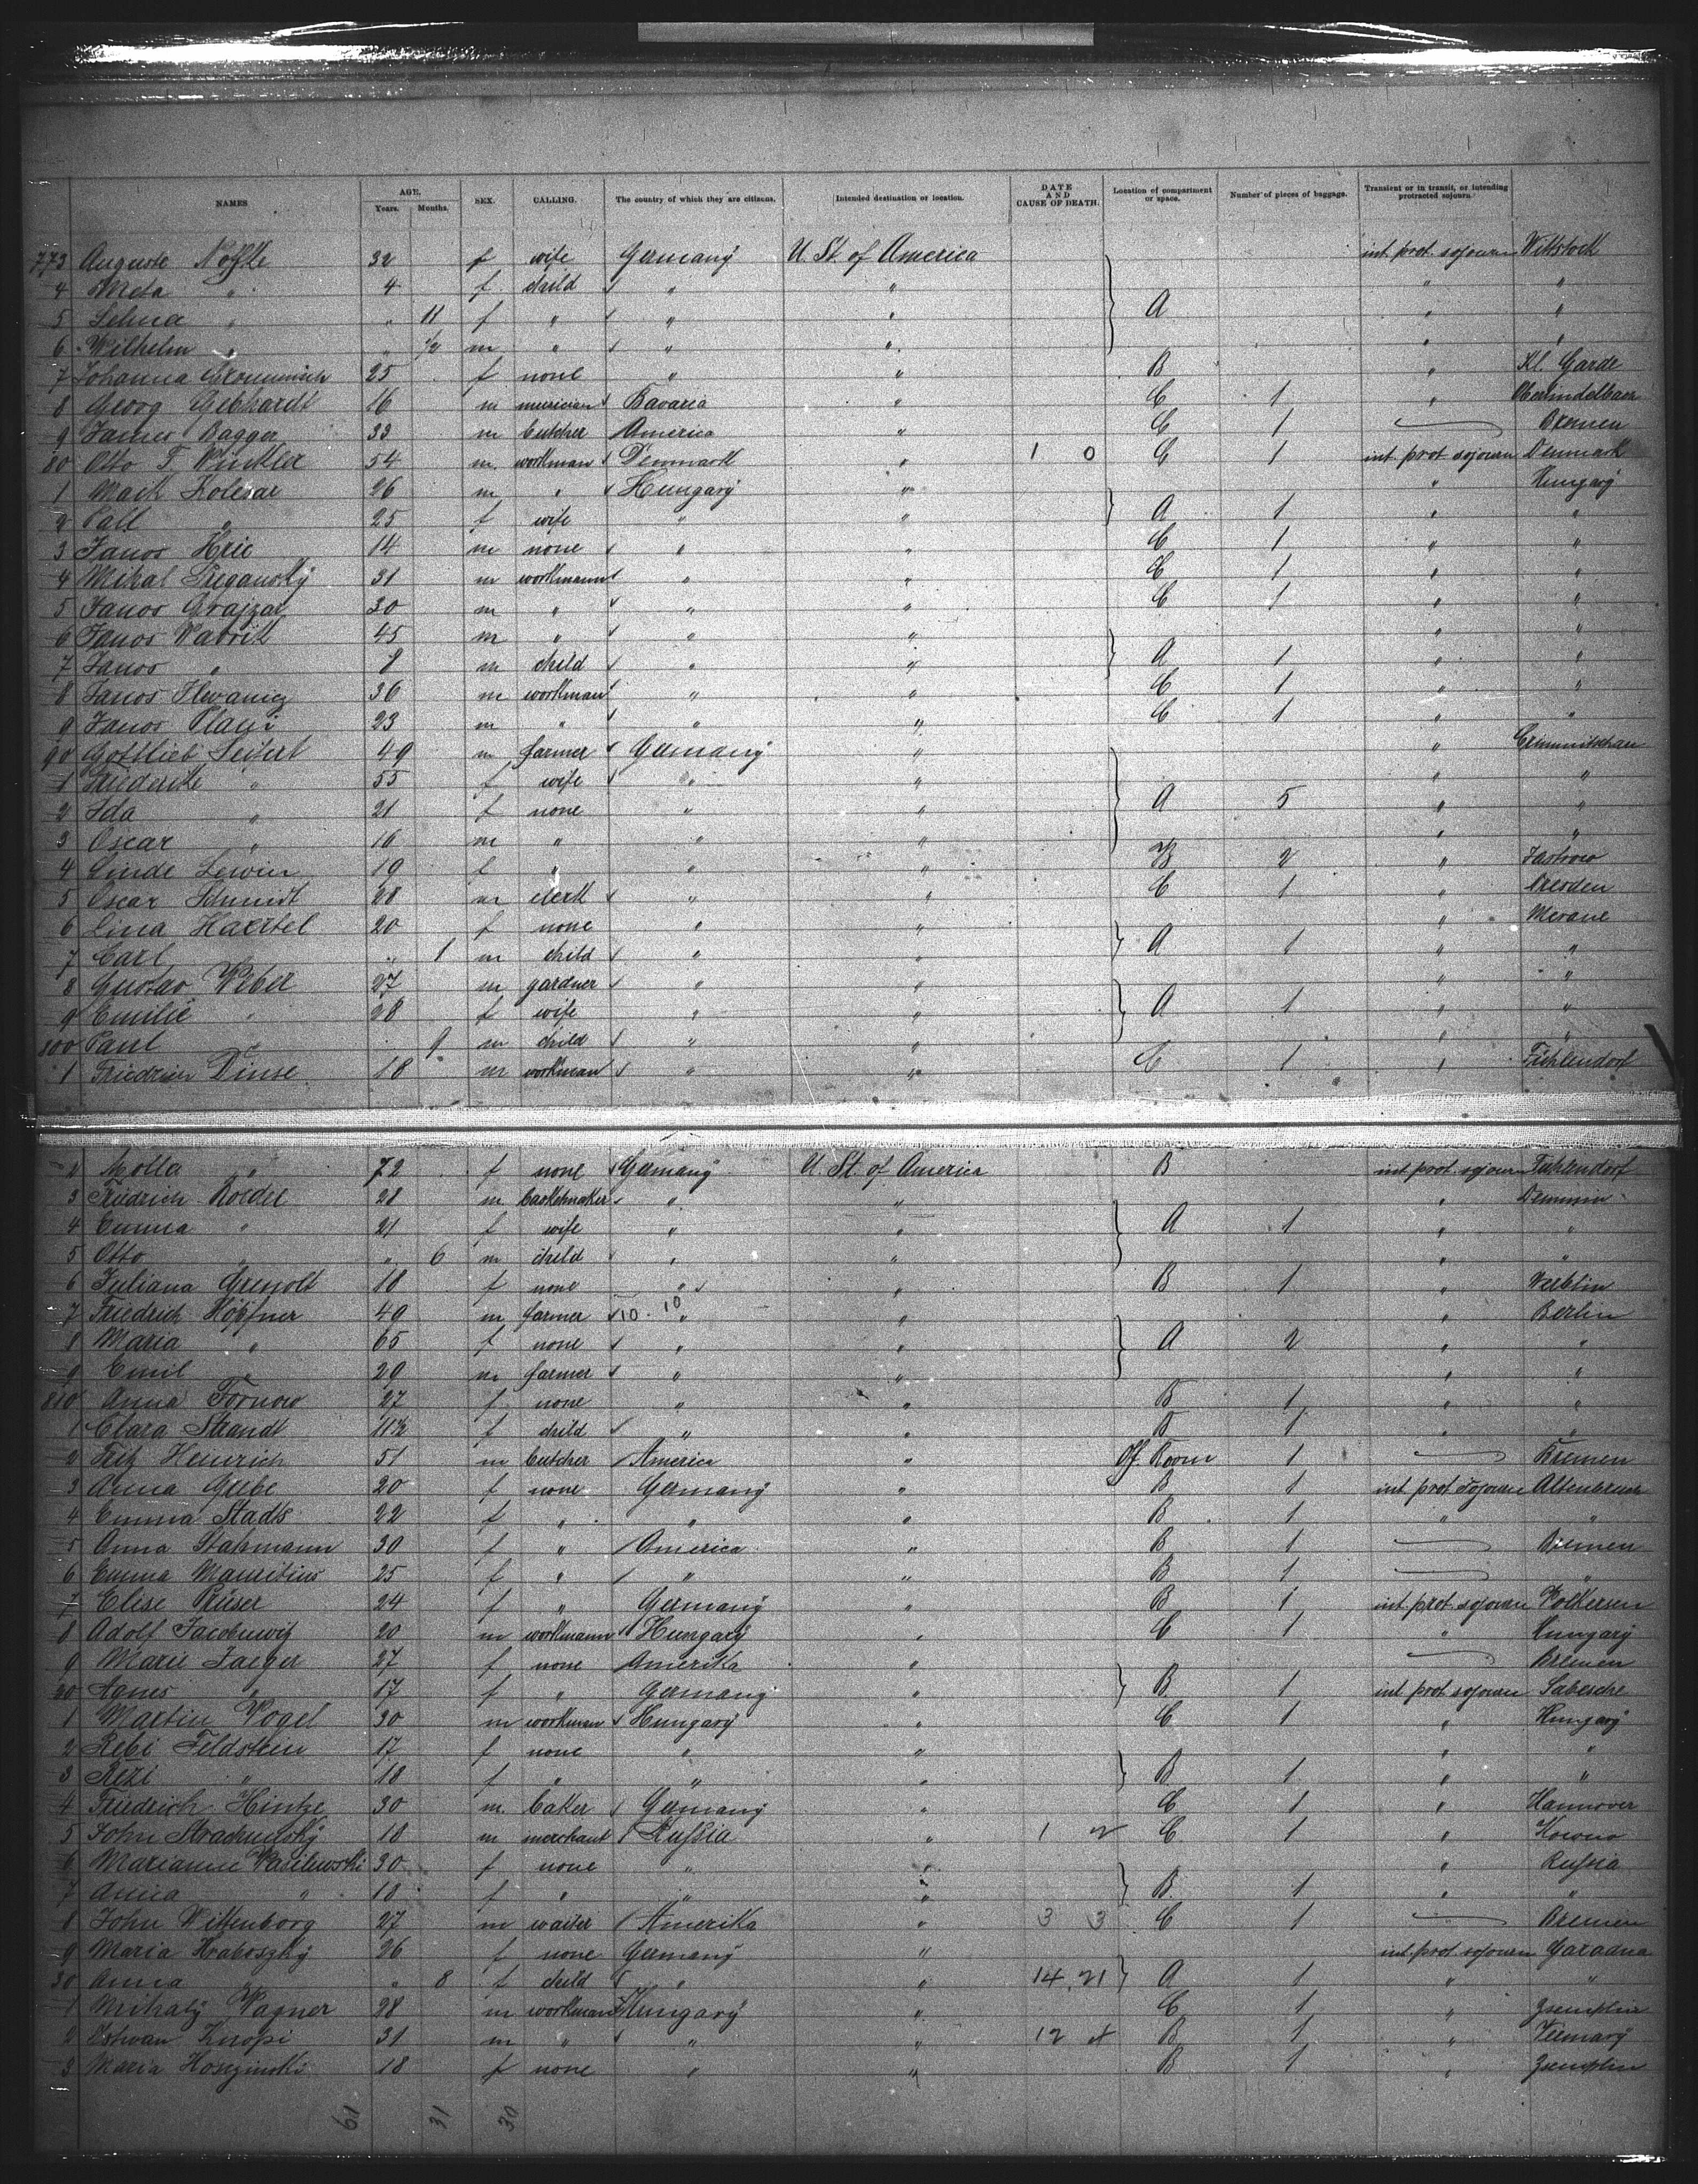 NAMES AGE. Years. Months. SEX. CALLING. The country of which they are citizens. Intended destination or location. DATE AND CAUSE OF DEATH. Location of compartment or space. Number of pieces of baggage. Transient or in transit, or intending protracted sojourn.
773 Auguste 32 f wife Germany U. St. of America int. prot. sojourn Wittstock
4 Meta " 4 f. child " " " "
5 Selma " " 11 f " " " A " "
6 Wilhelm " " 1/2 m " " " " "
7 Johanna 25 f none " " B " Kl. Garde
8 Georg Gebhardt 16 m musician Bavaria " C 1 "
9 James Bagger 33 m butcher America " C 1 Bremen
80 Otto F. Winkler 54 m workman Denmark " 1 0 C 1 int. prot. sojourn Denmark
1 26 m " Hungary " " Hungary
2 Pall " 25 f wife " " A 1 " "
3 Janos Hric 14 m none " " C 1 " "
4 Mihal 31 m workmann " " C 1 " "
5 Janos Grajzar 30 m " " " C 1 " "
6 Janos 45 m " " " " "
7 Janos " 8 m child " " A 1 " "
8 Janos 36 m workman " " C 1 " "
9 Janos 23 m " " " C 1 " "
90 Gottlieb Seifert 49 m farmer Germany " " Crimmitschau
1 Friederike " 55 f wife " " " "
2 Ida " 21 f none " " A 5 " "
3 Oscar " 16 m " " " " "
4 Linde Lewin 19 f " " " B 2 " Jastrow
5 Oscar Schmidt 28 m clerk " " C 1 " Dresden
6 Lina Haertel 20 f none " " " Merane
7 Carl " " 1 m child " " A 1 " "
8 Gustav Weber 27 m gardner " " " "
9 Emilie " 28 f wife " " A 1 " "
800 Paul " 9 m child " " " "
1 Friedrich Dinse 18 m workman " " C 1 " Fuhlendorf
2 " 72 f none Germany U. St. of America B int. prot. sojourn Fuhlendorf
3 Friedrich Roedel 28 m basketmaker " " " Demmin
4 Emma " 21 f wife " " A 1 " "
5 Otto " " 6 m child " " " "
6 Juliana 18 f none " " B 1 "
7 Friedrich Höpfner 49 m farmer 10. 10 " " " Berlin
8 Maria " 65 f none " " A 2 " "
9 Emil " 29 m farmer " " " "
810 Anna Tornow 27 f none " " B 1 " "
1 Clara Strandt 11 1/2 f child " " B 1 " "
2 Fritz Heinrich 51 m butcher America " Off. Room 1 Bremen
3 Anna Grebe 20 f none Germany " B 1 int. prot. sojourn Altenbruch
4 Emma Stadts 22 f " " " B 1 " "
5 Anna Stahmann 30 f " America " B 1 Bremen
6 Emma Mauritius 25 f " " " B 1 "
7 Elise Prüser 24 f " Germany " B 1 int. prot. sojourn Volkersen
8 Adolf 20 m workmann Hungary " C 1 " Hungary
9 Marie Jaeger 27 f none Amerika " Bremen
20 Agnes " 17 f " Germany " B 1 int. prot. sojourn
1 Martin Vogel 30 m workman Hungary " C 1 " Hungary
2 Rebi Feldstein 17 f none " " " "
3 Rezi " 18 f " " " B 1 " "
4 Friedrich Hintze 30 m. baker Germany " C 1 " Hannover
5 John 18 m merchant Russia " 1 2 C 1 " Kowno
6 Marianne Wasilewski 30 f none " " " Russia
7 Anna " 18 f " " " B 1 " "
8 John Wittenborg 27 m waiter Amerika " 3 3 C 1 Bremen
9 Maria 26 f none Germany " int. prot. sojourn Garadna
30 Anna " " 8 f child " " 14. 21 A 1 " "
1 Mihaly Wagner 28 m workman Hungary " C 1 " Zsemplin
2 Estwan Knopi 31 m " " " 12 B 1 "
3 Maria 18 f none " " B 1 " Zsemplin
61 31 30